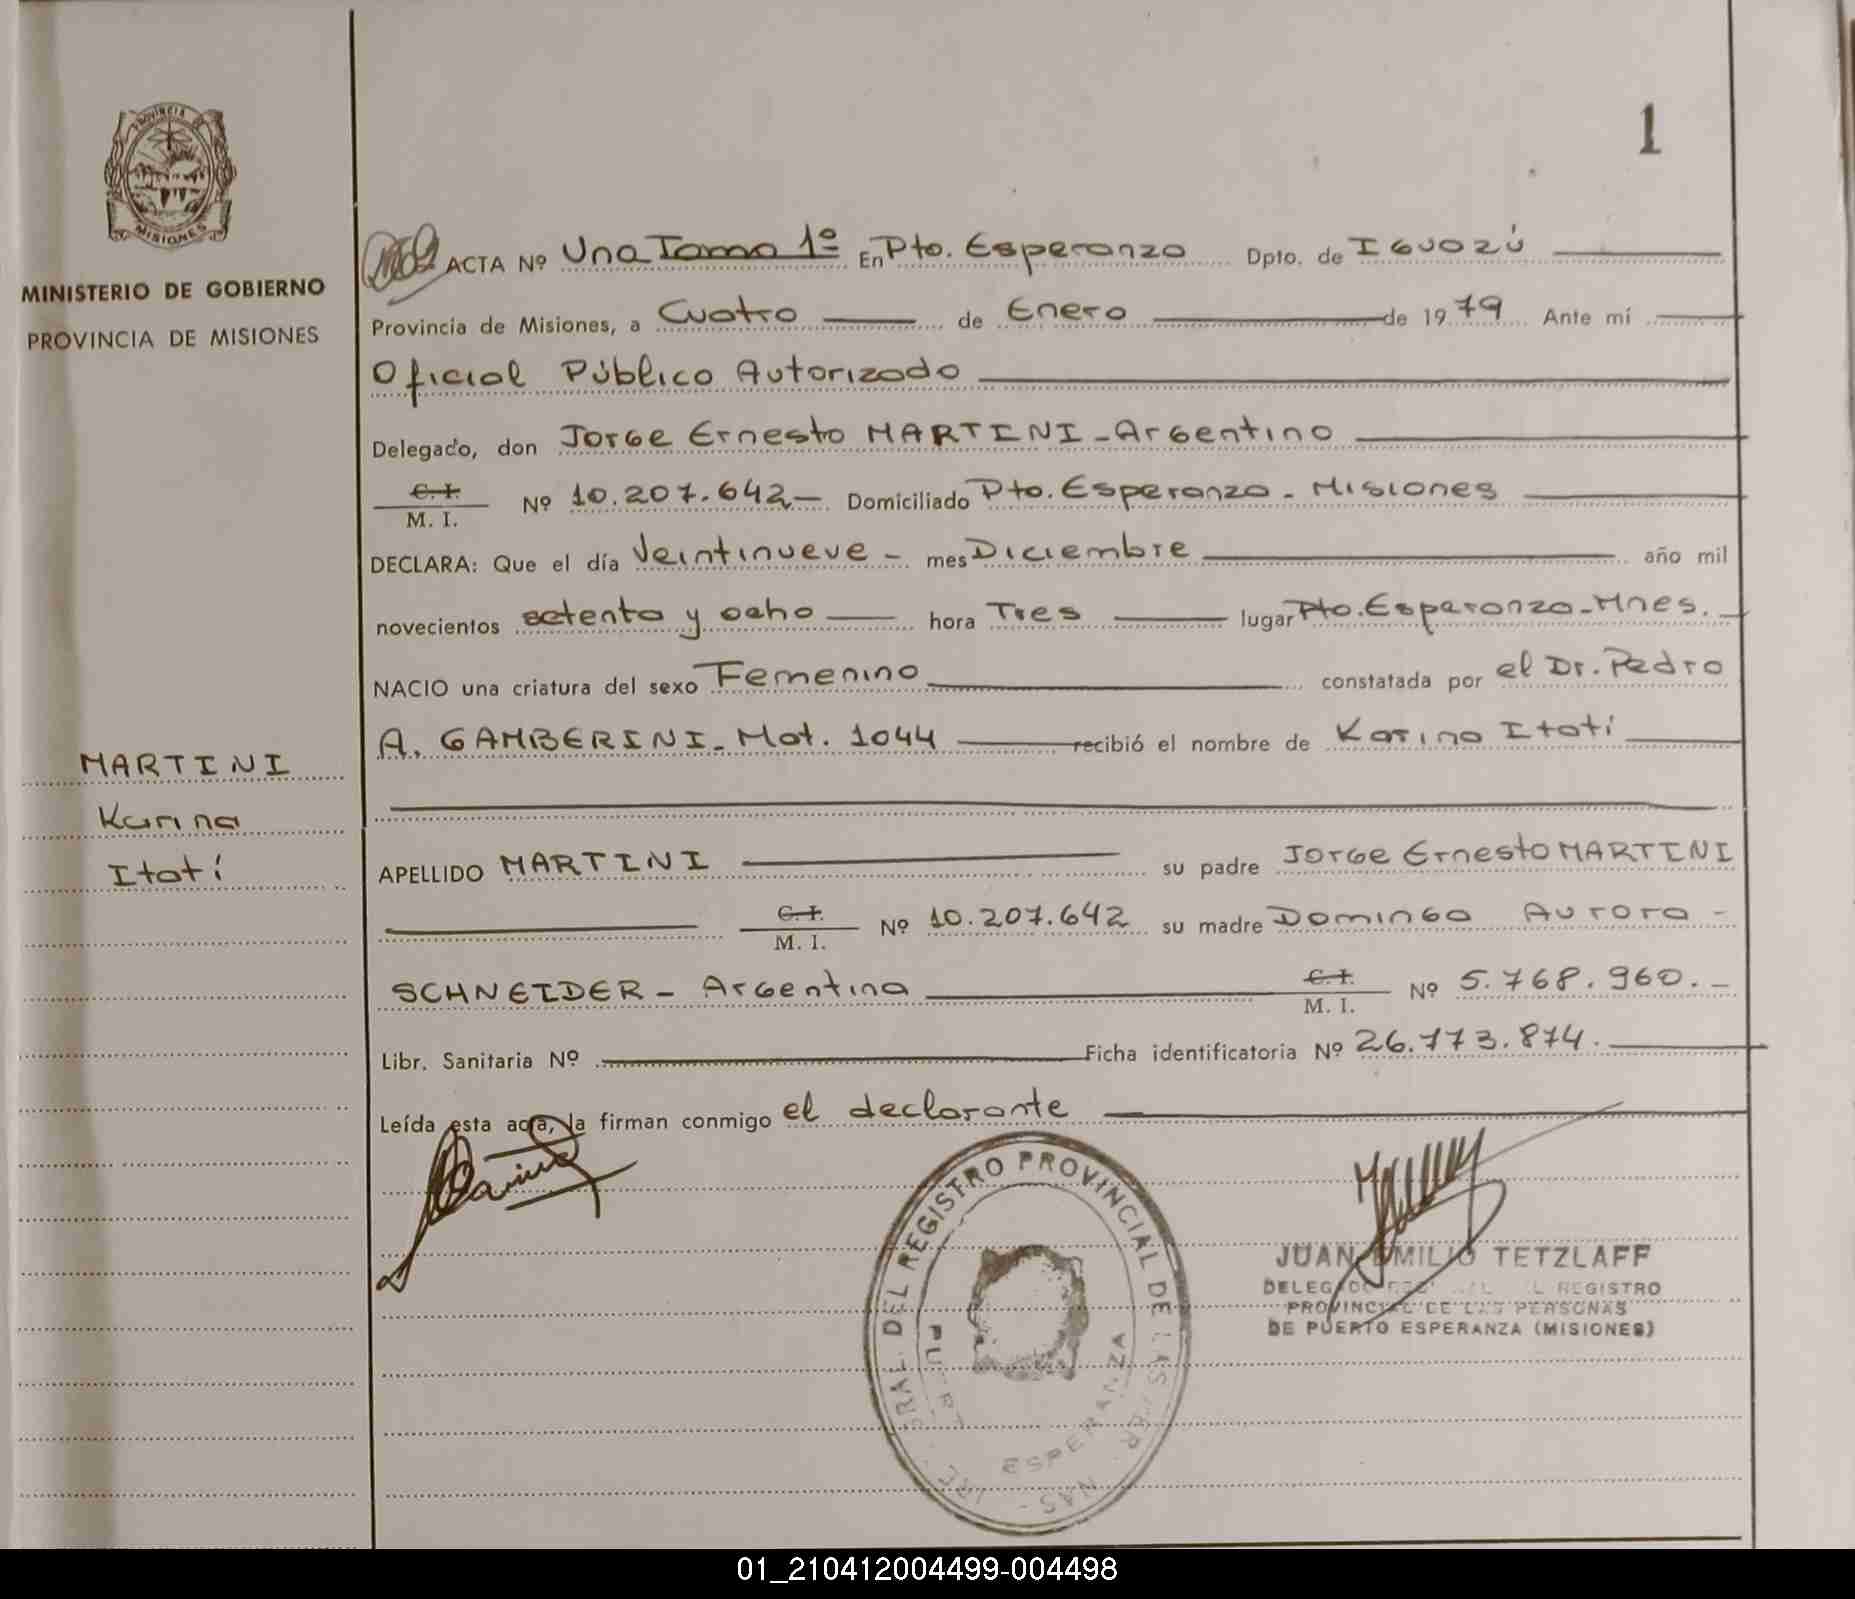 1
PROVINCIA
MISIONES
MINISTERIO DE GOBIERNO
PROVINCIA DE MISIONES
ACTA Nº Una Tomo 1º En Pto. Esperanza Dpto. de IGUAZÚ
Provincia de Misiones, a Cuatro de Enero de 1979 Ante mí
Oficial Público Autorizado
Delegado, don Jorge Ernesto MARTINI - Argentino
C. I.
M. I. Nº 10.207.642 - Domiciliado Pto. Esperanza - Misiones
DECLARA: Que el día Veintinueve - mes Diciembre año mil
novecientos setenta y ocho hora Tres lugar Pto. Esperanza - Mnes.
NACIO una criatura del sexo Femenino constatada por el Dr. Pedro
A. GAMBERINI - Mat. 1044 recibió el nombre de Karina Itatí
MARTINI
Karina
Itatí
APELLIDO MARTINI su padre Jorge Ernesto MARTINI
C. I.
M. I. Nº 10.207.642 su madre Dominga Aurora -
SCHNEIDER - Argentina C. I.
M. I. Nº 5.768.960. -
Libr. Sanitaria Nº Ficha identificatoria Nº 26.773.874.
Leída esta acta, la firman conmigo el declarante
DEL REGISTRO PROVINCIAL DE LAS
ESPERANZA
JUAN EMILIO TETZLAFF
DELEGADO REGISTRO
PROVINCIAL DE LAS PERSONAS
DE PUERTO ESPERANZA (MISIONES)
01_210412004499-004498